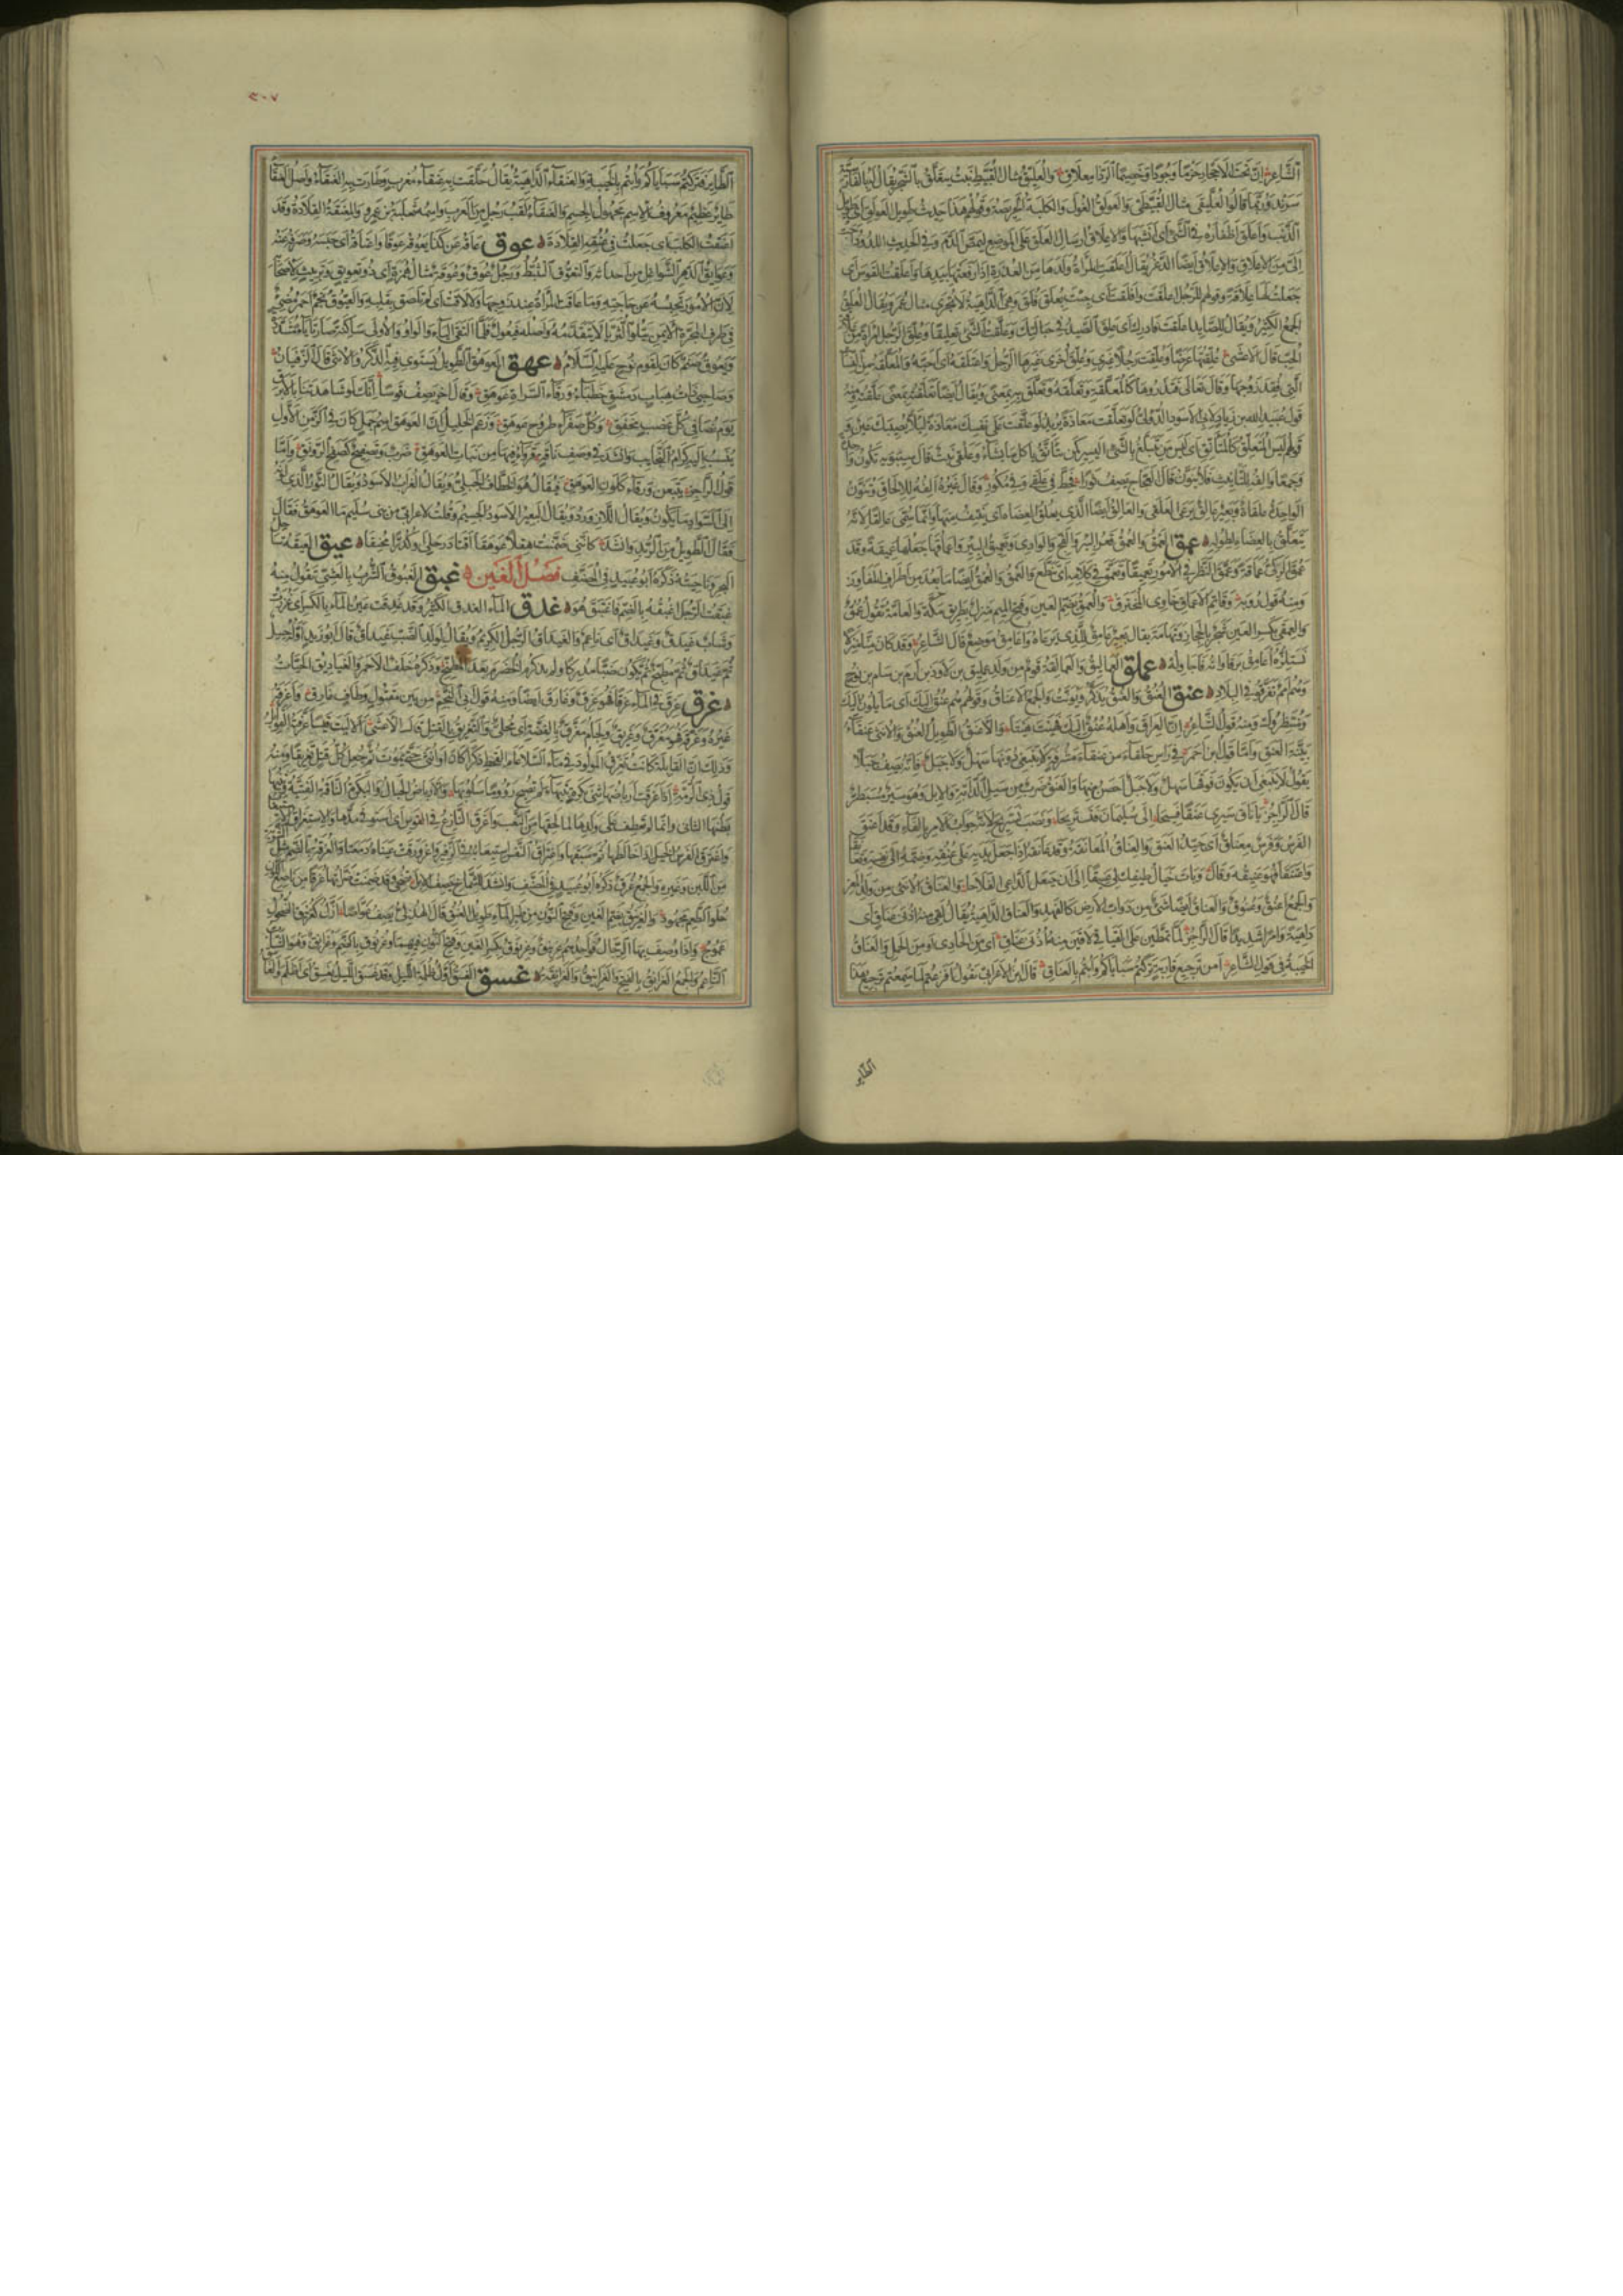 الشاعر إن تحت الأحجار حزما وجودا وخصيما ألد ذا معلاق والعليق مثال القبيط نبت يتعلق بالشجر يقال له بالفارسية
سرند وربما قالوا العليقى مثال القبيطى والعولق الغول والكلبة الحريصة وقولهم هذا حديث طويل العولق أي طويل
الذنب وأعلق أظفاره في الشيء أي أنشبها والإعلاق إرسال العلق على الموضع ليمص الدم وفي الحديث اللدود أحب
إلي من الإعلاق والإعلاق أيضا الدغر يقال أعلقت المرأة ولدها من العذرة إذا رفعتها بيدها وأعلقت القوس أي
جعلت لها علاقة وقولهم للرجل أعلقت وأفلقت أي جئت بعلق فلق وهي الداهية لا تجرى مثال عمر ويقال العلق
الجمع الكثير ويقال للصايد أعلقت فأدرك أي علق الصيد في حبالتك وعلقت الشيء تعليقا وعلق الرجل امرأة من علاقة
الحب قال الأعشى علقتها عرضا وعلقت رجلا غيري وعلق أخرى غيرها الرجل واعتلقه أي أحبه والمعلقة من النساء
التي فقد زوجها وقال تعالى فتذروها كالمعلقة وتعلقه وتعلق به بمعنى ويقال أيضا تعلقته بمعنى علقته ومنه
قول عبيد الله بن زياد لأبي الأسود الدؤلي لو تعلقت معاذة يريد لو علقت على نفسك معاذة لئلا تصيبك عين و
قولهم ليس المتعلق كالمتأنق أي ليس من يتبلغ بالشيء اليسير كمن يتأنق يأكل ما يشاء وعلقى نبت قال سيبويه تكون واحدة
وجمعا وألفه للتأنيث فلا ينون قال العجاج يصف ثورا فحط في علقى وفي مكور وقال غيره ألفه للإلحاق وتنون
الواحدة علقاة وبعير عالق يرعى العلقى والعالق أيضا الذي يعلق العضاه أي ينتف منها وإنما سمي عالقا لأنه
يتعلق بالعضاه لطوله عمق العمق والعمق قعر البئر والفج والوادي وتعميق البئر وإعماقها جعلها عميقة وقد
عمق الركي عماقة وعمق النظر في الأمور تعميقا وتعمق في كلامه أي تنطع والعمق والعمق أيضا ما بعد من أطراف المفاوز
ومنه قول رؤبة وقاتم الأعماق خاوي المخترق والعمق بضم العين وفتح الميم منزل بطريق مكة والعامة تقول عمق
والعمقى بكسر العين شجر بالحجاز وتهامة يقال بعير عامق للذي يرعاه وأعامق موضع قال الشاعر وقد كان منا منزلا
نستلذه أعامق برقاواته فأجاوله عملق العماليق والعمالقة قوم من ولد عمليق بن لاوذ بن إرم بن سام بن نوح
وهم أمم تفرقوا في البلاد عنق العنق والعنق يذكر ويؤنث والجمع الأعناق وقولهم هم عنق إليك أي مائلون إليك
ومنتظروك ومنه قول الشاعر إن العراق وأهله عنق إليك فهيت هيتا والأعنق الطويل العنق والأنثى عنقاء
بينة العنق وأما قول ابن أحمر في رأس خلقاء من عنقاء مشرفة لا يبتغى دونها سهل ولا جبل فإنه يصف جبلا
يقول لا ينبغي أن يكون فوقها سهل ولا جبل أحصن منها والعنق ضرب من سير الدابة والإبل وهو سير مسبطر
قال الراجز يا ناق سيري عنقا فسيحا إلى سليمان فنستريحا ونصب نستريح لأنه جواب الأمر بالفاء وقد أعنق
الفرس وفرس معناق أي جيد العنق والعناق المعانقة وقد عانقه إذا جعل يديه على عنقه وضمه إلى نفسه وتعانقا
واعتنقا فهو عنيقه وقال وبات خيال طيفك لي عنيقا إلى أن حيعل الداعي الفلاحا والعناق الأنثى من ولد المعز
والجمع أعنق وعنوق والعناق أيضا شيء من دواب الأرض كالفهد والعناق الداهية يقال لقي منه أذنى عناق أي
داهية وأمرا شديدا قال الراجز لما تمطين على القياقي لاقين منه أذني عناق أي من الحادي أو من الجمل والعناق
الخيبة في قول الشاعر أمن ترجيع قارية تركتم سباياكم وأبتم بالعناق قال ابن الأعرابي يقول أفزعتم لما سمعتم ترجيع هذا
الطائر
٢٠٧
الطائر فتركتم سباياكم وأبتم بالخيبة والعنقاء الداهية يقال حلقت به عنقاء مغرب وطارت به العنقاء وأصل العنقاء
طائر عظيم معروف الاسم مجهول الجسم والعنقاء لقب رجل من العرب واسمه ثعلبة بن عمرو والمعنقة القلادة وقد
أعنقت الكلب أي جعلت في عنقه القلادة عوق عاقه عن كذا يعوقه عوقا واعتاقه أي حبسه وصرفه عنه
وعوايق الدهر الشواغل من أحداثه والتعوق التثبط ورجل عوق وعوقة مثال همزة أي ذو تعويق وتربيث لأصحابه
لأن الأمور تحبسه عن حاجته وما عاقت المرأة عند زوجها ولا لاقت أي لم تلصق بقلبه والعيوق نجم أحمر مضيء
في طرف المجرة الأيمن يتلو الثريا لا يتقدمه وأصله فيعول فلما التقى الياء والواو والأولى ساكنة صارتا ياء مشددة
ويعوق صنم كان لقوم نوح عليه السلام عهق العوهق الطويل يستوي فيه الذكر والأنثى قال الزفيان
وصاحبي ذات هباب دمشق خطباء ورقاء السراة عوهق وقال آخر يصف قوسا إنك لو شاهدتنا بالأبرق
يوم نصافي كل عضب مخفق وكل صفراء طروح عوهق وزعم الخليل أن العوهق اسم جمل كان في الزمن الأول
ينسب إليه كرام النجائب وأنشد في وصف ناقة قرواء فيها من بنات العوهق ضرب وتصفيح كصفح الرونق وأما
قول الراجز يتبعن ورقاء كلون العوهق فيقال هو الخطاف الجبلي ويقال الغراب الأسود ويقال الثور الذي لونه
إلى السواد ما يكون ويقال اللازورد ويقال البعير الأسود الجسيم وقلت لأعرابي من بني سليم ما العوهق فقال
فقال الطويل من الربد وأنشد كأنني ضمنت هقلا عوهقا أقتاد رحلي وكدرا محنقا عيق العيقة ساحل
البحر وناحيته ذكره أبو عبيد في المصنف فصل الغين غبق الغبوق الشرب بالعشي تقول منه
غبقت الرجل أغبقه بالضم فاغتبق هو غدق الماء الغدق الكثير وقد غدقت عين الماء بالكسر أي غزرت
وشاب غيدق وغيداق أي ناعم والغيداق الرجل الكريم ويقال لولد الضب غيداق قال أبو زيد أوله حسل
ثم غيداق ثم مطبخ ثم يكون ضبا مدركا ولم يذكر الخضرم بعد المطبخ وذكره خلف الأحمر والغياديق الحيات
غرق غرق في الماء غرقا فهو غرق وغارق أيضا ومنه قول أبي النجم من بين مقتول وطاف غارق وأغرقه
غيره وغرقه فهو مغرق وغريق ولجام مغرق بالفضة أي محلى والتغريق القتل قال الأعشى ألا ليت قيسا غرقته القوابل
وذلك أن القابلة كانت تغرق المولود في ماء السلا عام القحط ذكرا كان أو أنثى حتى يموت ثم جعل كل قتل تغريقا ومنه
قول ذي الرمة إذا غرقت أرباضها ثني بكرة بتيهاء لم تصبح رؤوما سلوبها والأرباض الحبال والبكرة الناقة الفتية وثنيها
بطنها الثاني وإنما لم تعطف على ولدها لما لحقها من التعب وأغرق النازع في القوس أي استوفى مدها والاستغراق الاستيعاب
واغترق الفرس الخيل إذا خالطها ثم سبقها واغتراق النفس استيعابه في الزفير واغرورقت عيناه دمعتا والغرقة بالضم مثل الشربة
من اللبن وغيره والجمع غرق ذكره أبو عبيد في المصنف وأنشد للشماخ يصف الإبل تضحي وقد ضمنت ضراتها غرقا من ناصع اللون
حلو الطعم مجهود والغرنيق بضم الغين وفتح النون من طير الماء طويل العنق قال الهذلي يصف غواصا أزل كغرنيق الضحول
عموج وإذا وصف بها الرجال فواحدهم غرنيق وغرنوق بكسر الغين وفتح النون فيهما وغرنوق بالضم وغرانق وهو الشاب
الناعم والجمع الغرانق بالفتح والغرانيق والغرانقة غسق الغسق أول ظلمة الليل وقد غسق الليل يغسق أي أظلم والغاسق